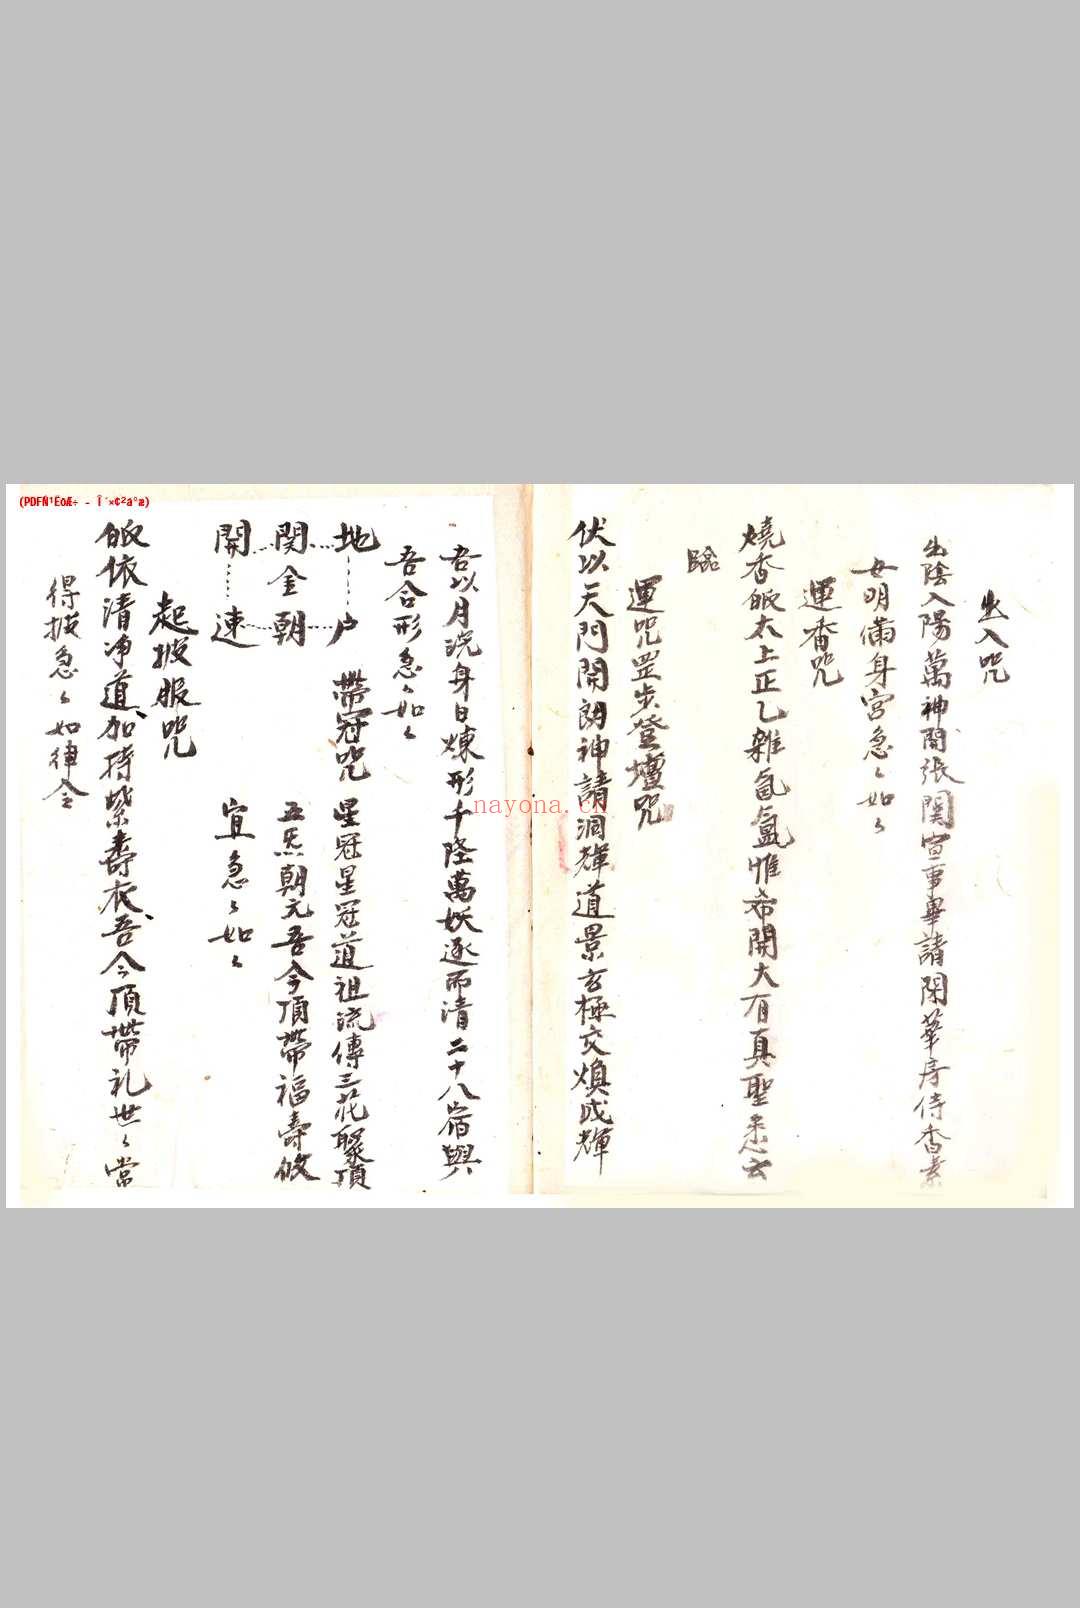 (PDFÑ¹ËõÆ÷ - Î´×¢²á°æ)
nayona.cn
出入咒
出陰入陽萬神開張関宣事畢請閉華房侍香素
女明俻身宮急〻如〻
運香咒
燒香皈太上正乙雜氤氳惟希開大有真聖悉云
臨
運咒罡步登壇咒
伏以天門開朗神請洞輝道景玄極交煥成輝
吾以月洗身日煉形千隆萬妖逐而清二十八宿與
吾合形急〻如〻
地戶
関金朝
開速
帶冠咒
星冠星冠道祖流傳三花聚頂
五炁朝元吾今頂帶福壽攸
宜急〻如〻
起披服咒
皈依清净道加持紫壽衣吾今頂帶礼世〻常
得披急〻如律令